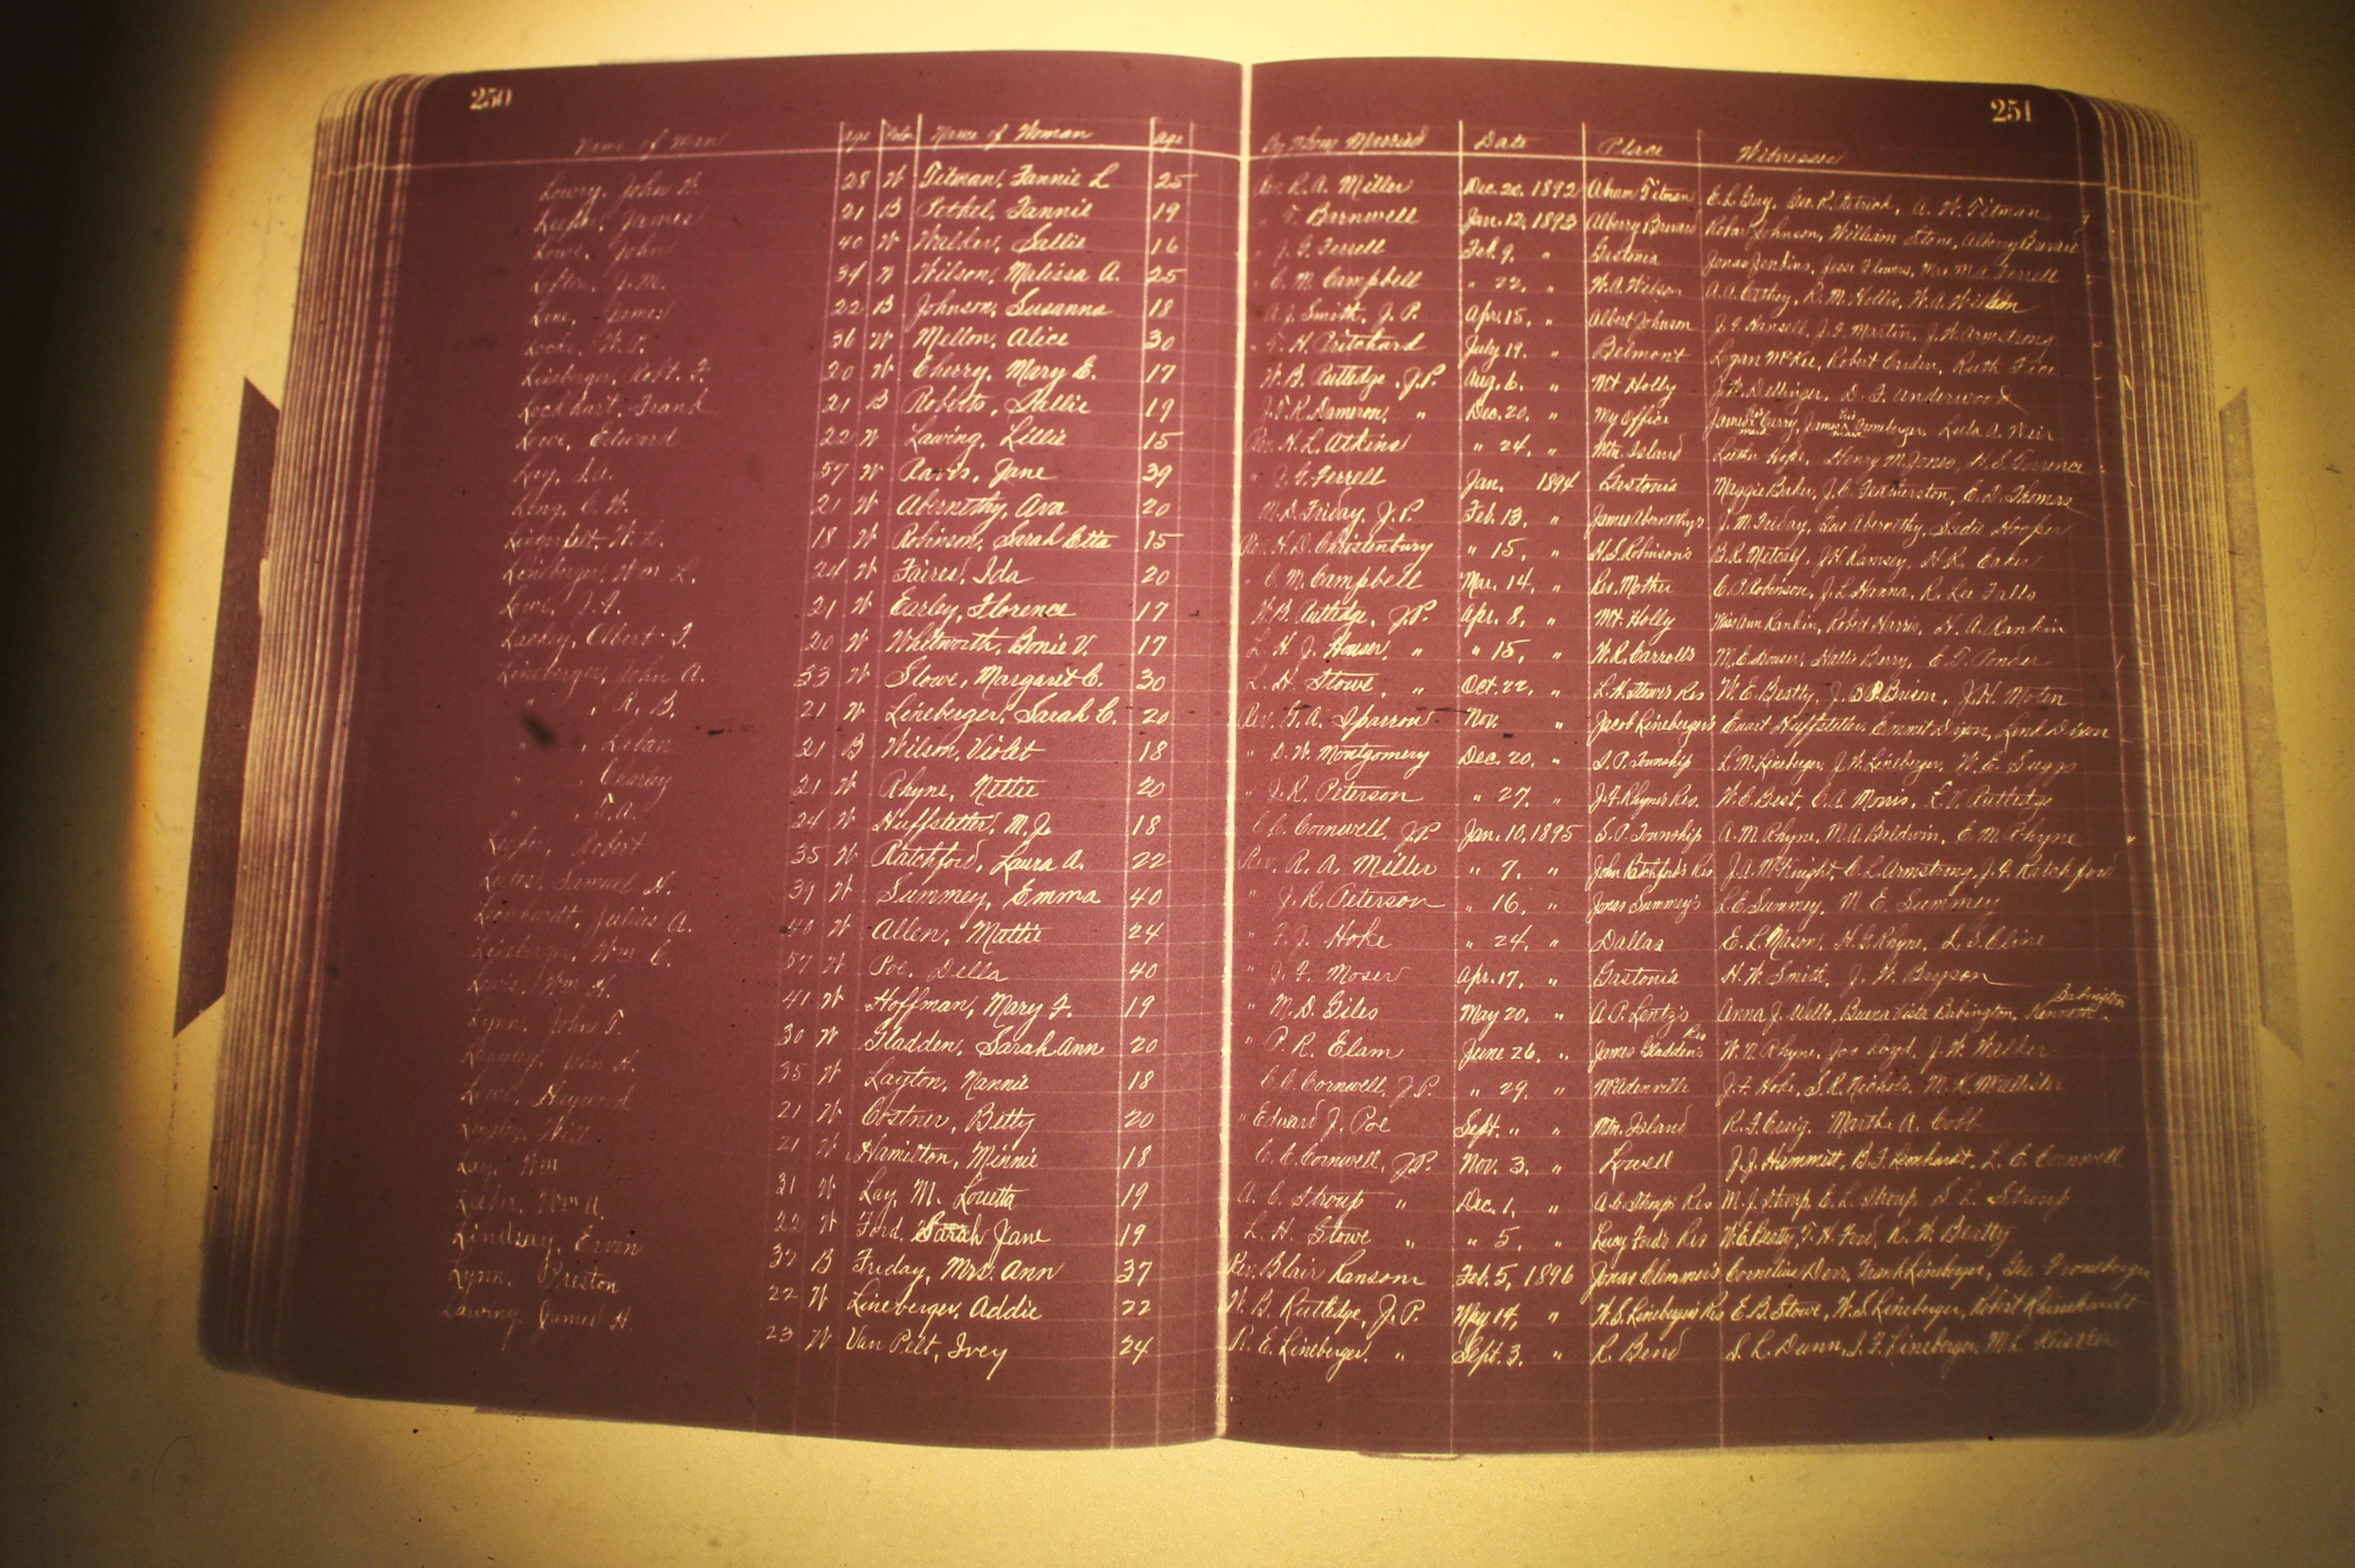 250
251
Name of Man age Color Name of Woman age By Whom Married Date Place Witnesses
Lowry, John 28 W Titman, Fannie L 25 Rev. R. A. Miller Dec. 20, 1892 Abram Titman E. L. Gay, Geo. R. Patrick, A. W. Titman
Leeper, James 21 B Pethel, Fannie 19 " T. Barnwell Jan. 12, 1893 Alberry Brevard Johnson, William Stone, Alberry Brevard
Lowe, John 40 W Walker, Sallie 16 " J. G. Ferrell Feb. 9, " Gastonia Jonas Jenkins, Jesse Flowers, Mrs M. A. Ferrell
Lofton, J. M. 34 W Wilson, Malissa A. 25 " C. M. Campbell " 22, " W. A. Wilson A. A. R. M. Hollis, W. A. Wilson
James 22 B Johnson, Susanna 18 A. J. Smith, J. P. Apr. 15, " Albert Johnson J. G. Hansell, J. F. Martin, J. W. Armstrong
Locke, W. P. 36 W Mellon, Alice 30 " T. H. Pritchard July 19. " Belmont Logan McKee, Robert Ruth
Lineberger, Robt. F. 20 W Cherry, Mary E. 17 W. B. Rutledge, J.P. Aug. 6. " Mt Holly J. F. Dellinger, D. F. Underwood
Lockhart, Frank 21 B Roberts, Sallie 19 J. R. Dameron, " Dec. 20. " My Office James his mark Curry, James his mark Froneberger, Lula A. Weir
Lowe, Edward 22 W Lawing, Lillie 15 Rev. H. L. Atkins " 24. " Mtn. Island Luther Hope, Henry M. Jones, H. S. Torrence
Lay, 57 W Davis, Jane 39 " J. G. Ferrell Jan. 1894 Gastonia Maggie Baker, J. C. Featherston, E. D. Thomas
Long, C. W. 21 W Abernethy, Ava 20 M. D. Friday, J. P. Feb. 13, " James Abernethy's J. M. Friday, Gus Abernethy, Sudie Hooper
Lingerfelt, W. L. 18 W Robinson, Sarah Etta 15 Rev. H. D. Christenbury " 15, " H. S. Robinson's B. R. Metcalf, J. H. Ramsey, H. R. Eaker
Lineberger, Wm L. 24 W Faires, Ida 20 " C. M. Campbell Mar. 14, " Res. Mother C. P. Robinson, J. L. Hanna, R. Lee Falls
Lowe, J. A. 21 W Earley, Florence 17 W. B. Rutledge, J.P. Apr. 8, " Mt. Holly Miss Ann Rankin, Robert Harris, H. A. Rankin
Lackey, Albert F. 20 W Whitworth, Bonie V. 17 L. H. J. Houser, " " 15, " W. R. Carroll's M. E. Houser, Hallie Berry, E. T. Ponder
Lineberger, John A. 33 W Stowe, Margaret C. 30 L. H. Stowe, " Oct. 22, " L. H. Stowe's Res W. E. Beatty, J. B P. Brison, J. H. Moten
" , R. B. 21 W Lineberger, Sarah C. 20 Rev. G. A. Sparrow Nov. " Jacob Lineberger's Euart Huffstetler, Emmit Dixon, Lind Dixon
" , Laban 21 B Wilson, Violet 18 " D. W. Montgomery Dec. 20. " S. P. Township L. M. Lineberger, J. W. Lineberger, W. E. Suggs
" , Charley 21 W Rhyne, Nettie 20 " J. R. Peterson " 27. " J. F. Rhyne's Res. W. C. Best, C. A. Morris, Rutledge
" , T. A. 24 W Huffstetler, M. J. 18 C. C. Cornwell, J.P. Jan. 10, 1895 S. P. Township A. M. Rhyne, M. A. Baldwin, E. M. Rhyne
Leeper, Robert 35 W Ratchford, Laura A. 22 Rev. R. A. Miller " 7. " John Ratchford's Res J. A. McKnight, C. L. Armstrong, J. F. Ratchford
Samuel H. 39 W Summey, Emma 40 " J. R. Peterson " 16. " Jonas Summey's L. E. Summey, M. E. Summey
Leonhardt, Julius A. 40 W Allen, Mattie 24 " F. J. Hoke " 24. " Dallas E. L. Mason, H. G. Rhyne, L. S. Cline
Lineberger, Wm C. 57 W Poe, Della 40 " J. F. Moser Apr. 17, " Gastonia H. W. Smith, J. W. Bryson
Lewis, Wm H. 41 W Hoffman, Mary F. 19 " M. D. Giles May 20, " A. P. Lentz's Anna J. Wells, Buena Vista Babington, Kenneth Babington
Lynn, John T. 30 W Gladden, Sarah Ann 20 " P. R. Elam June 26. " James Gladden's Res W. N. Rhyne, Joe Loyd, J. W. Walker
35 W Layton, Nannie 18 C. C. Cornwell, J.P. " 29. " McAdenville J. F. Hoke, S. R. Nichols, M. K. McAllister
Lowe, Heywood 21 W Costner, Betty 20 " Edward J. Poe Sept. " " Mtn. Island R. F. Craig, Martha A. Cobb
Will 21 W Hamilton, Minnie 18 C. C. Cornwell, J.P. Nov. 3, " Lowell J. J. Hammitt, B. F. Leonhardt, L. E. Cornwell
Lay, Wm 31 W Lay, M. Louetta 19 A. C. Stroup " Dec. 1, " A. C. Stroup's Res M. J. Stroup, E. L. Stroup, S. L. Stroup
Leeper, Wm A. 22 W Ford, Sarah Jane 19 L. H. Stowe " " 5, " Lucy Ford's Res W. E. Beatty, T. H. Ford, R. W. Beatty
Lindsay, Ervin 37 B Friday, Mrs. Ann 37 Rev. Blair Ransom Feb. 5, 1896 Jonas Clemmer's Cornelius Derr, Frank Lineberger, Geo. Froneberger
Lynn, Preston 22 W Lineberger, Addie 22 W. B. Rutledge, J. P. May 14, " W. S. Lineberger's Res E. B. Stowe, W. S. Lineberger, Robert Rhinehardt
Lawing, James H. 23 W Van Pelt, Ivey 24 R. E. Lineberger, " Sept. 3, " R. Bend S. L. Dunn, J. F. Lineberger, M. L. Keistler